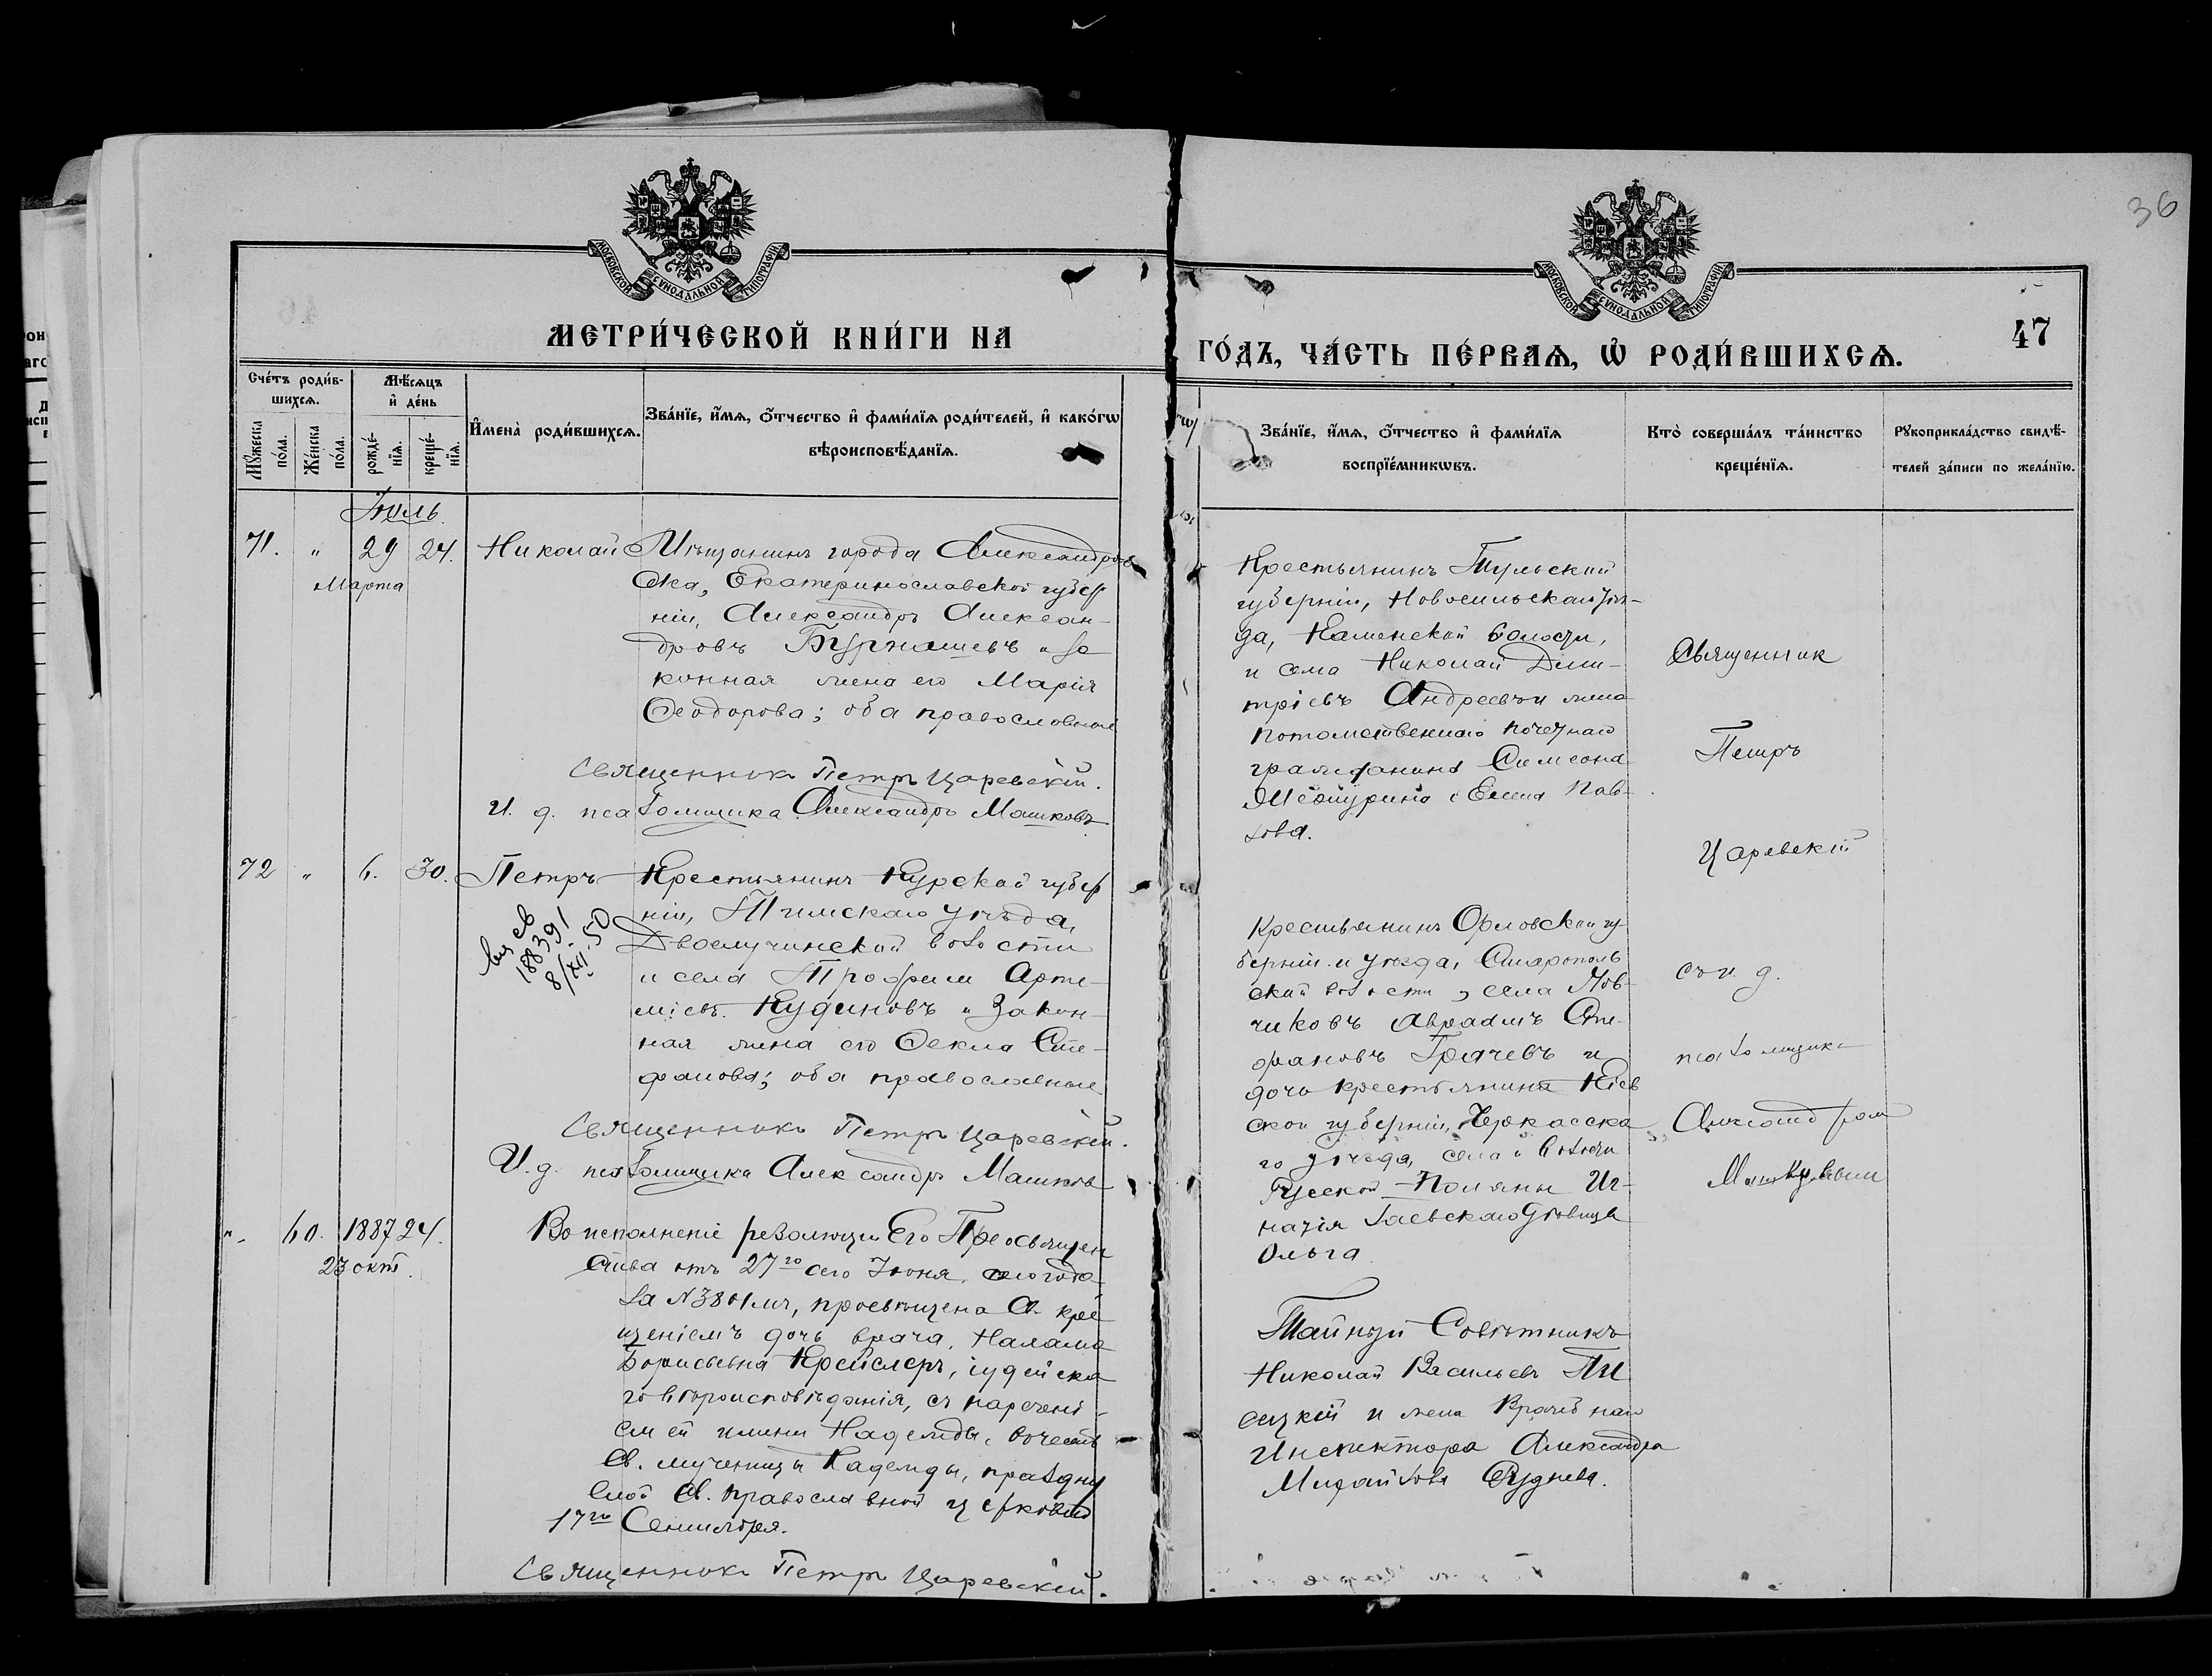 36
МОСКОВСКОЙ СѴНОДАЛЬНОЙ ТИПОГРАФІИ
МОСКОВСКОЙ СѴНОДАЛЬНОЙ ТИПОГРАФІИ
МЕТРИ́ЧЕСКОЙ КНИ́ГИ НА
ГО́ДЪ, ЧА́СТЬ ПЕ́РВАѦ, Ѡ҆ РОДИ́ВШИХСѦ.
47
Сче́тъ роди́в-
шихсѧ.
Мѣ́сѧцъ
и҆ де́нь
Мꙋ́жеска
по́ла.
Же́нска
по́ла.
рожде́-
нїѧ.
креще́-
нїѧ.
И҆мена̀ роди́вшихсѧ.
Зва́нїе, и҆́мѧ, ѻ҆́тчество и҆ фами́лїѧ роди́телей, и҆ како́гѡ
вѣроисповѣ́данїѧ.
Зва́нїе, и҆́мѧ, ѻ҆́тчество и҆ фами́лїѧ
воспрїе́мникѡвъ.
Кто̀ соверша́лъ та́инство
креще́нїѧ.
Рꙋкоприкла́дство свидѣ́-
телей за́писи по жела́нїю.
Іюль.
71. „ 29 24. Николай Мѣщанинъ города Александров
Марта
ска, Екатеринославской губер
ніи, Александръ Алексан-
дровъ Бурнашевъ и за
конная жена его Марія
Ѳеодорова; оба православные
Священникъ Петръ Царевскій.
И. д. псаломщика Александръ Машковъ
Крестьянинъ Тульской
губерніи, Новосильскаго уѣз-
да, Каменской волости,
и села Николай Дими-
тріевъ Андреевъ и жена
потомственнаго почетнаго
гражданина Симеона
Елена Пав-
лова.
Священник
Петръ
Царевскій
72 „ 6. 30. Петръ Крестьянинъ Курской губер
ніи, Тимскаго уѣзда,
Двоелучинской волости
и села Трофим Арте-
міевъ Кудиновъ и закон-
ная жена его Ѳекла Сте-
фанова; оба православные
св
188391
8/XII.50
Священникъ Петръ Царевскій.
И. д. псаломщика Александръ Машковъ
Крестьянинъ Орловской гу
берніи и уѣзда, Старополь
ской волости, села Мов-
чиковъ Авраамъ Сте-
фановъ Грачевъ и
дочь крестьянина Кіев
ской губерніи, Черкасска
го уѣзда, села и волости
Русской Поляны Иг-
натія Гаевскаго дѣвица
Ольга
съ и. д.
псаломщика
Александром
Машковым
„. 60. 1887 24.
23 окт.
Во исполненіе резолюціи Его Преосвящен
ства отъ 27го сего Іюня, сего года
за N3801мъ, просвѣщена Св. кре
щеніемъ дочь врача,
Борисовна Крейслеръ, іудейска
го вѣроисповѣданія, съ наречені-
ем ей имени Надежды, въ честь
Св. мученицы Надежды, праздну
емой Св. православной церковію
17го Сентября.
Священникъ Петръ Царевскій.
Тайный Совѣтникъ
Николай Васильевъ Пи
сецкій и жена Врачебнаго
Инспектора Александра
Михайлова Руднева.